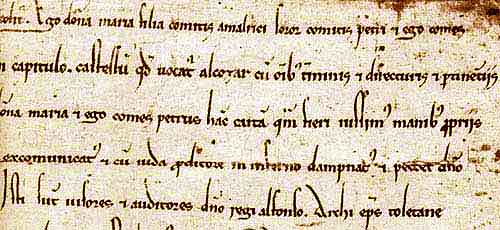 Ego dona maria filia comitis amalrici soror comitis petri & ego comes
in capitulo. castellu qd vocat alcozar cu oibs tminis & directuris & ptinetiis
dona maria & ego comes petrus hac carta qm fieri iussim manibs ppriis
excomunicat & cu iuda pditore in inferno dampnat & pectet dno
Isti sut visores & auditores dno regi alfonso. Archi eps toletane